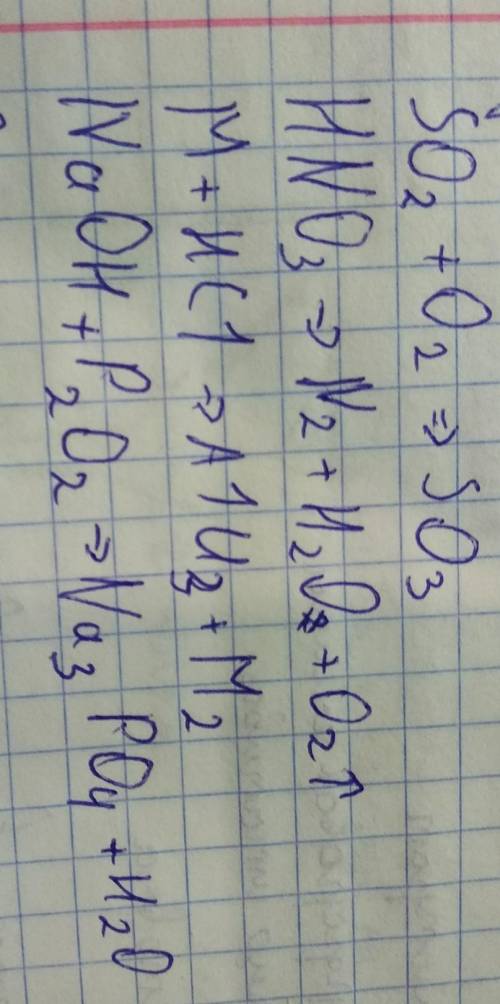 SO₂ + O₂ ⇒ SO₃
HNO₃ ⇒ N₂ + H₂O + O₂↑
M + HCl ⇒ AlCl₃ + M₂
NaOH + P₂O₂ ⇒ Na₃PO₄ + H₂O